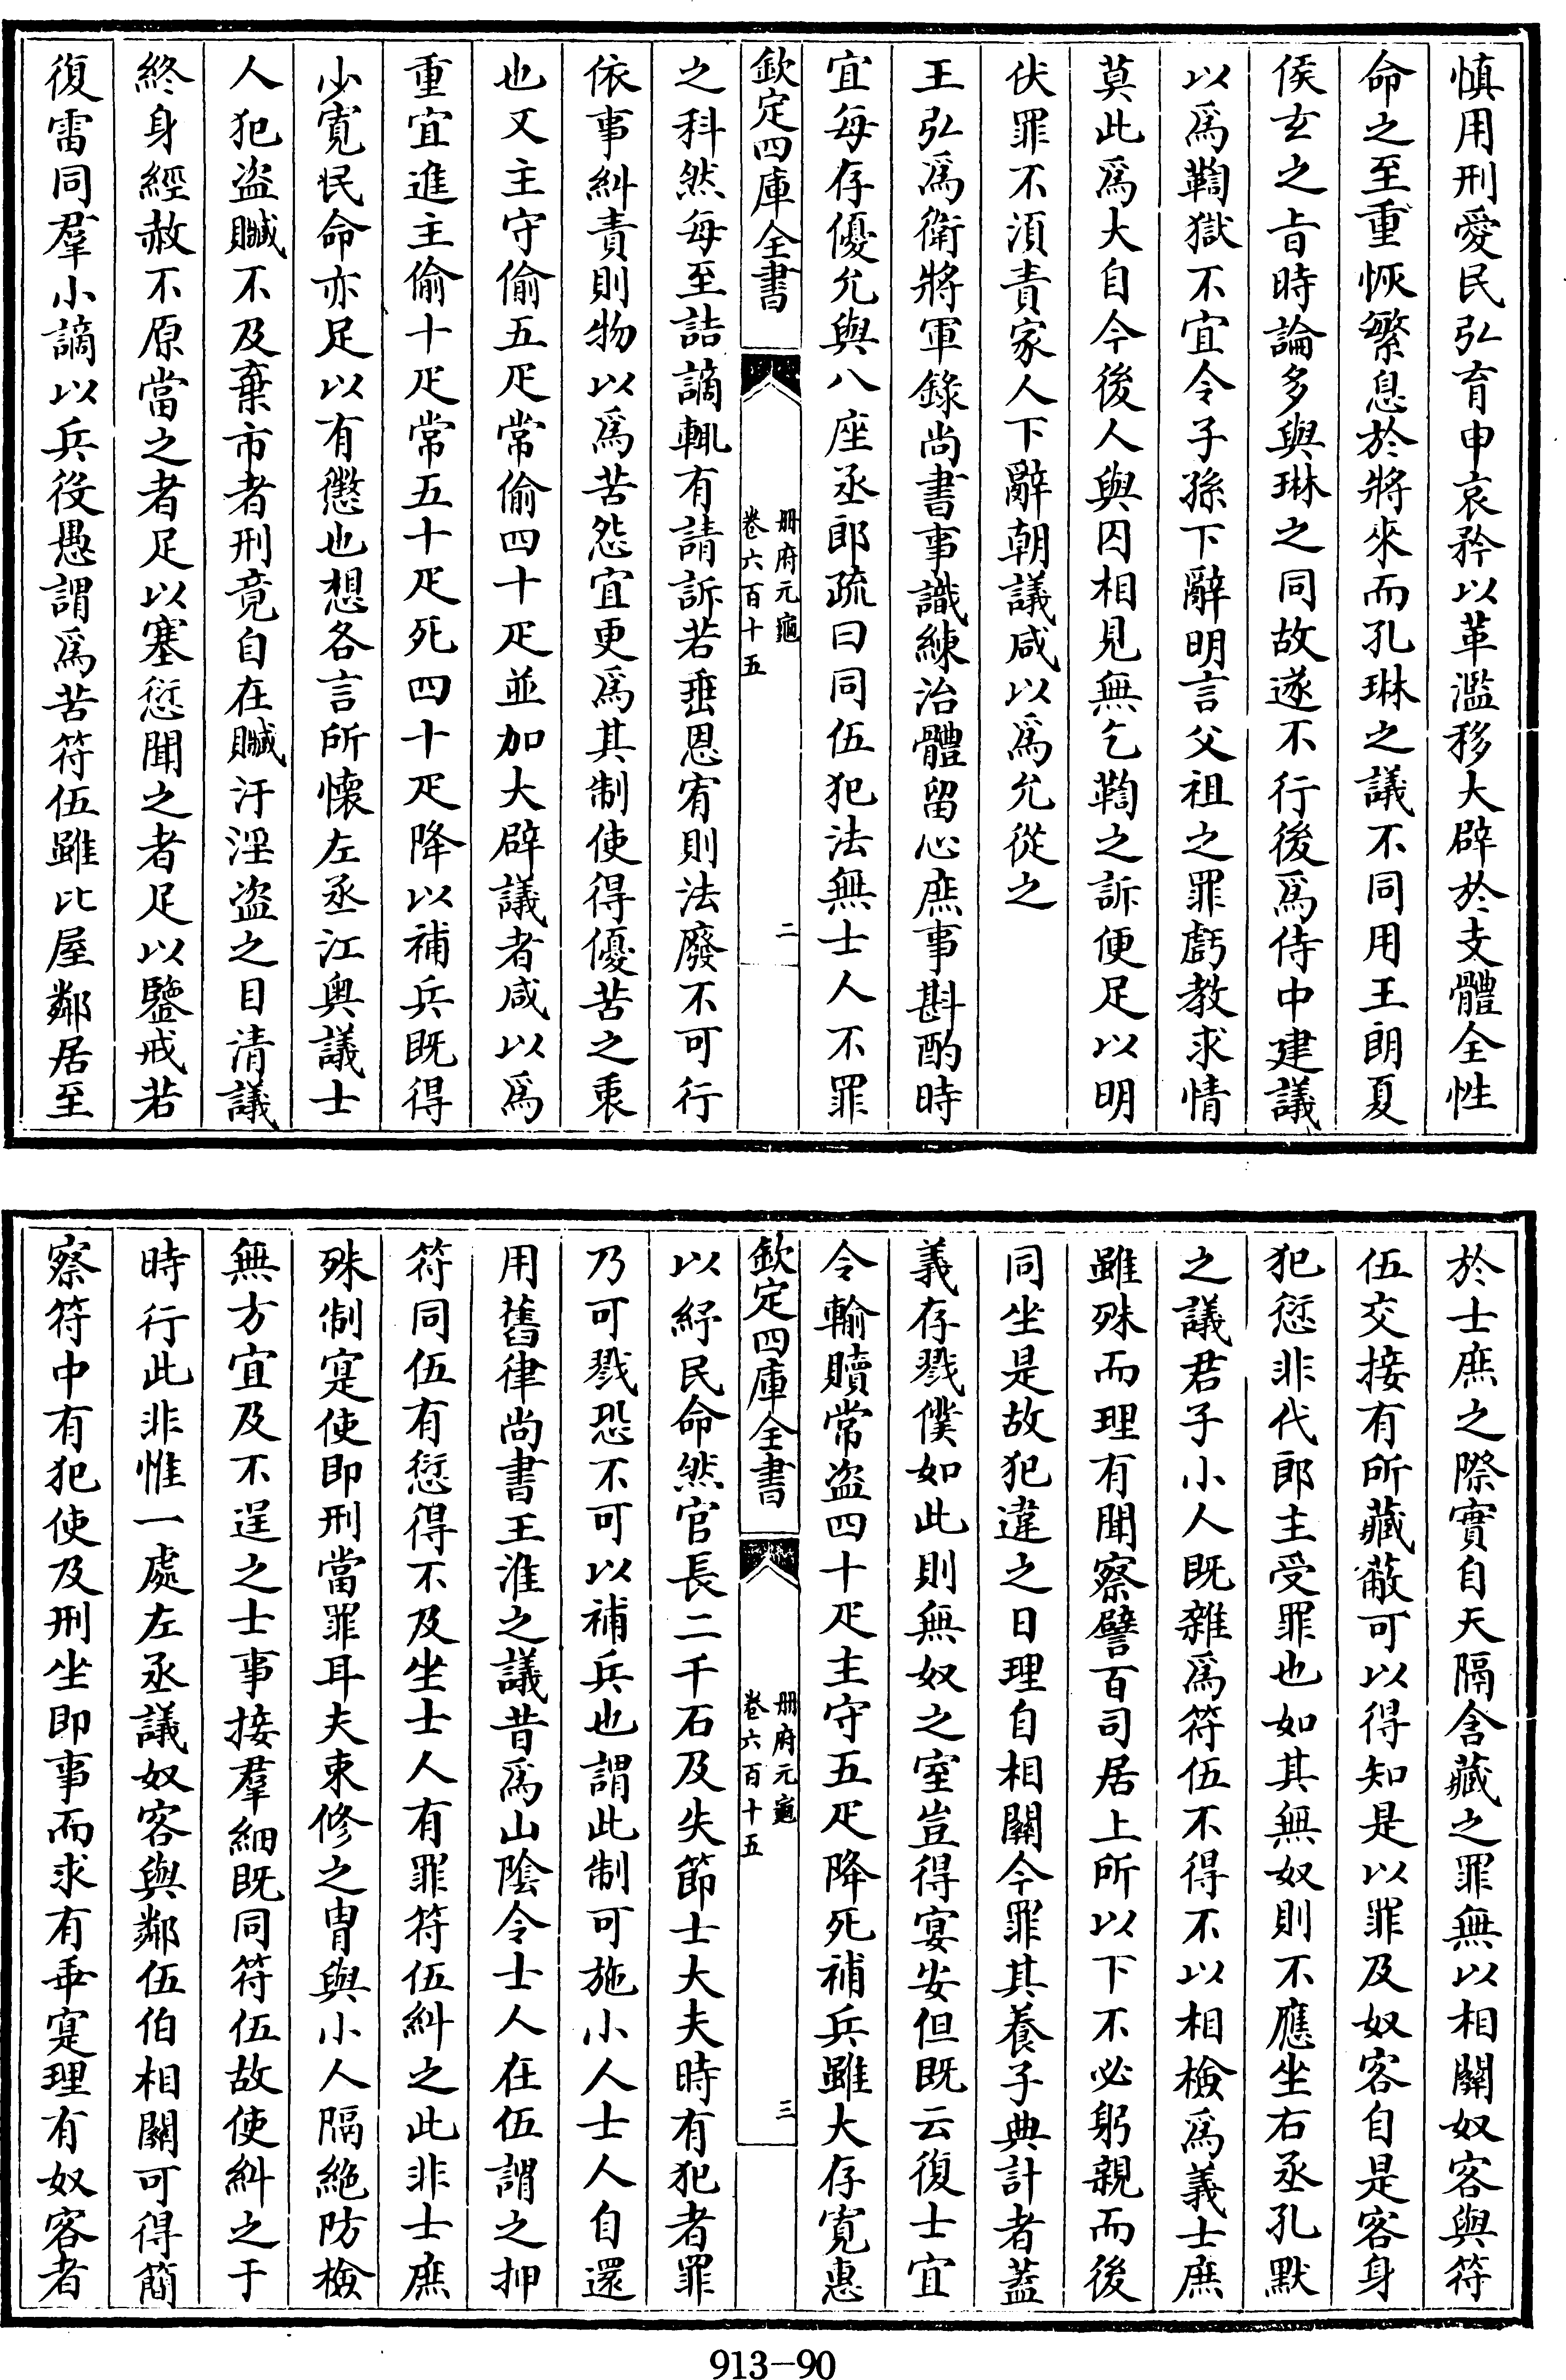 慎用刑愛民弘育申哀矜以革濫移大辟於支體全性
命之至重恢繁息於將來而孔琳之議不同用王朗夏
侯玄之旨時論多與琳之同故遂不行後爲侍中建議
以爲鞫獄不宜令子孫下辭明言父祖之罪虧教求情
莫此爲大自今後人與囚相見無乞鞫之訴便足以明
伏罪不須責家人下辭朝議咸以爲允從之
王弘爲衛將軍錄尚書事識練治體留心庶事斟酌時
宜每存優允與八座丞郎疏曰同伍犯法無士人不罪
欽定四庫全書
册府元龜
卷六百十五
二
之科然每至詰謫輒有請訴若垂恩宥則法廢不可行
依事糾責則物以爲苦怨宜更爲其制使得優苦之衷
也又主守偷五疋常偷四十疋並加大辟議者咸以爲
重宜進主偷十疋常五十疋死四十疋降以補兵既得
少寬民命亦足以有懲也想各言所懷左丞江奥議士
人犯盗贓不及棄市者刑竟自在贓汙淫盗之目清議
終身經赦不原當之者足以塞愆聞之者足以鑒戒若
復雷同羣小謫以兵役愚謂爲苦符伍雖比屋鄰居至
於士庶之際實自天隔含藏之罪無以相關奴客與符
伍交接有所藏蔽可以得知是以罪及奴客自是客身
犯愆非代郎主受罪也如其無奴則不應坐右丞孔默
之議君子小人既雜爲符伍不得不以相檢爲義士庶
雖殊而理有聞察譬百司居上所以下不必躬親而後
同坐是故犯違之日理自相關今罪其養子典計者蓋
義存戮僕如此則無奴之室豈得宴安但既云復士宜
令輸贖常盗四十疋主守五疋降死補兵雖大存寬惠
欽定四庫全書
册府元龜
卷六百十五
三
以紓民命然官長二千石及失節士大夫時有犯者罪
乃可戮恐不可以補兵也謂此制可施小人士人自還
用舊律尚書王淮之議昔爲山陰令士人在伍謂之押
符同伍有愆得不及坐士人有罪符伍糾之此非士庶
殊制寔使即刑當罪耳夫束修之胄與小人隔絶防檢
無方宜及不逞之士事接羣細既同符伍故使糾之于
時行此非惟一處左丞議奴客與鄰伍伯相關可得簡
察符中有犯使及刑坐即事而求有乖寔理有奴客者
913-90